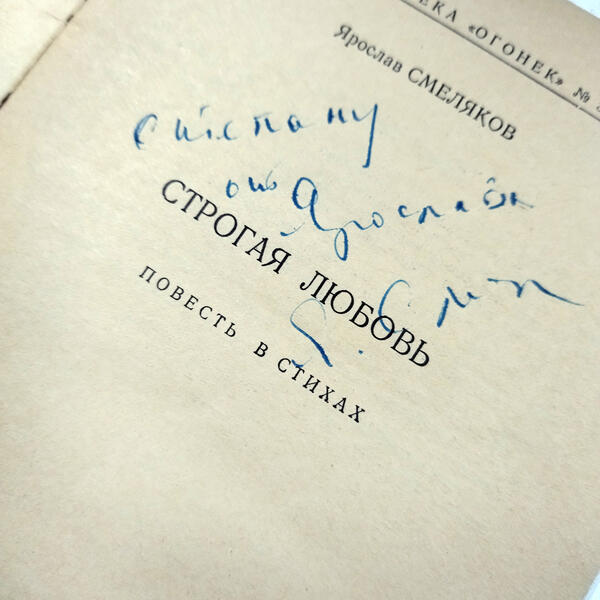 ЕКА «ОГОНЕК» №
Ярослав СМЕЛЯКОВ
Степану
от Ярослава
СТРОГАЯ ЛЮБОВЬ
ПОВЕСТЬ В СТИХАХ